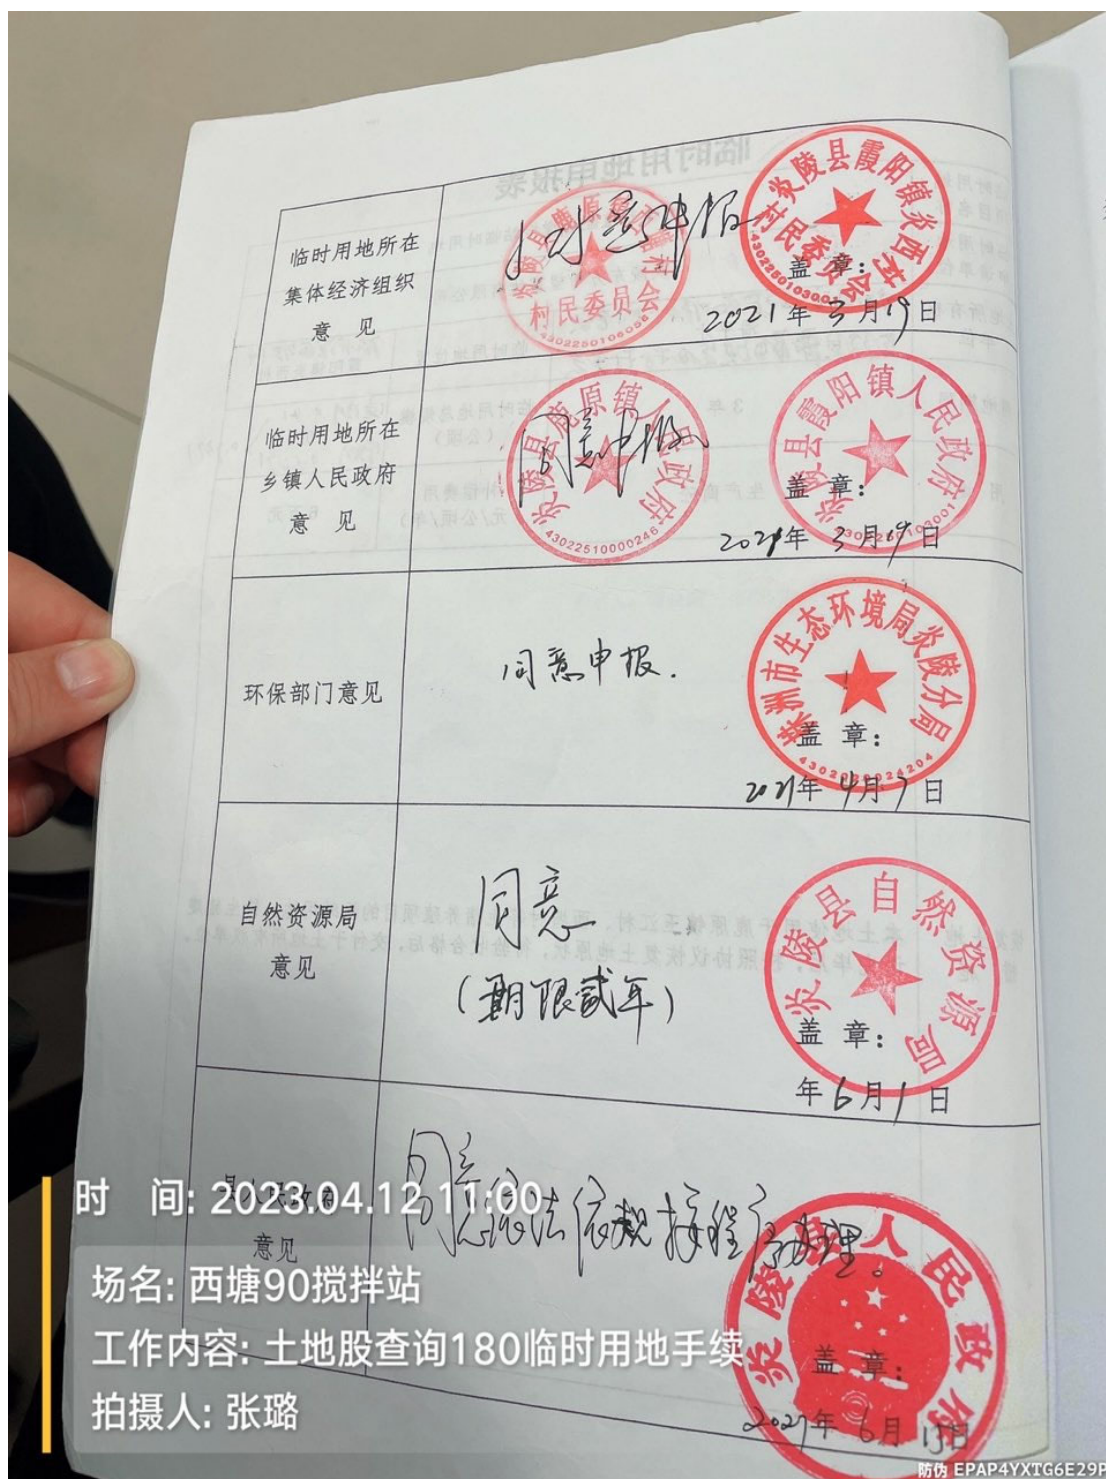 临时用地所在
集体经济组织
意 见
同意申报
炎陵县鹿原镇西
村民委员会
炎陵县霞阳镇炎西村
村民委员会
盖 章:
2021年3月19日
临时用地所在
乡镇人民政府
意 见
同意申报
炎陵县鹿原镇人民政府
43022510000246
炎陵县霞阳镇人民政府
盖 章:
2021年3月19日
环保部门意见
同意申报.
株洲市生态环境局炎陵分局
盖 章:
2021年4月7日
自然资源局
意见
同意
(期限贰年)
炎陵县自然资源局
盖 章:
年6月1日
县人民政府
意见
同意依法依规按程序办理。
炎陵县人民政府
盖 章:
2021年6月 日
时 间: 2023.04.12 11:00
场名: 西塘90搅拌站
工作内容: 土地股查询180临时用地手续
拍摄人: 张璐
防伪 EPAP4YXTG6E29P